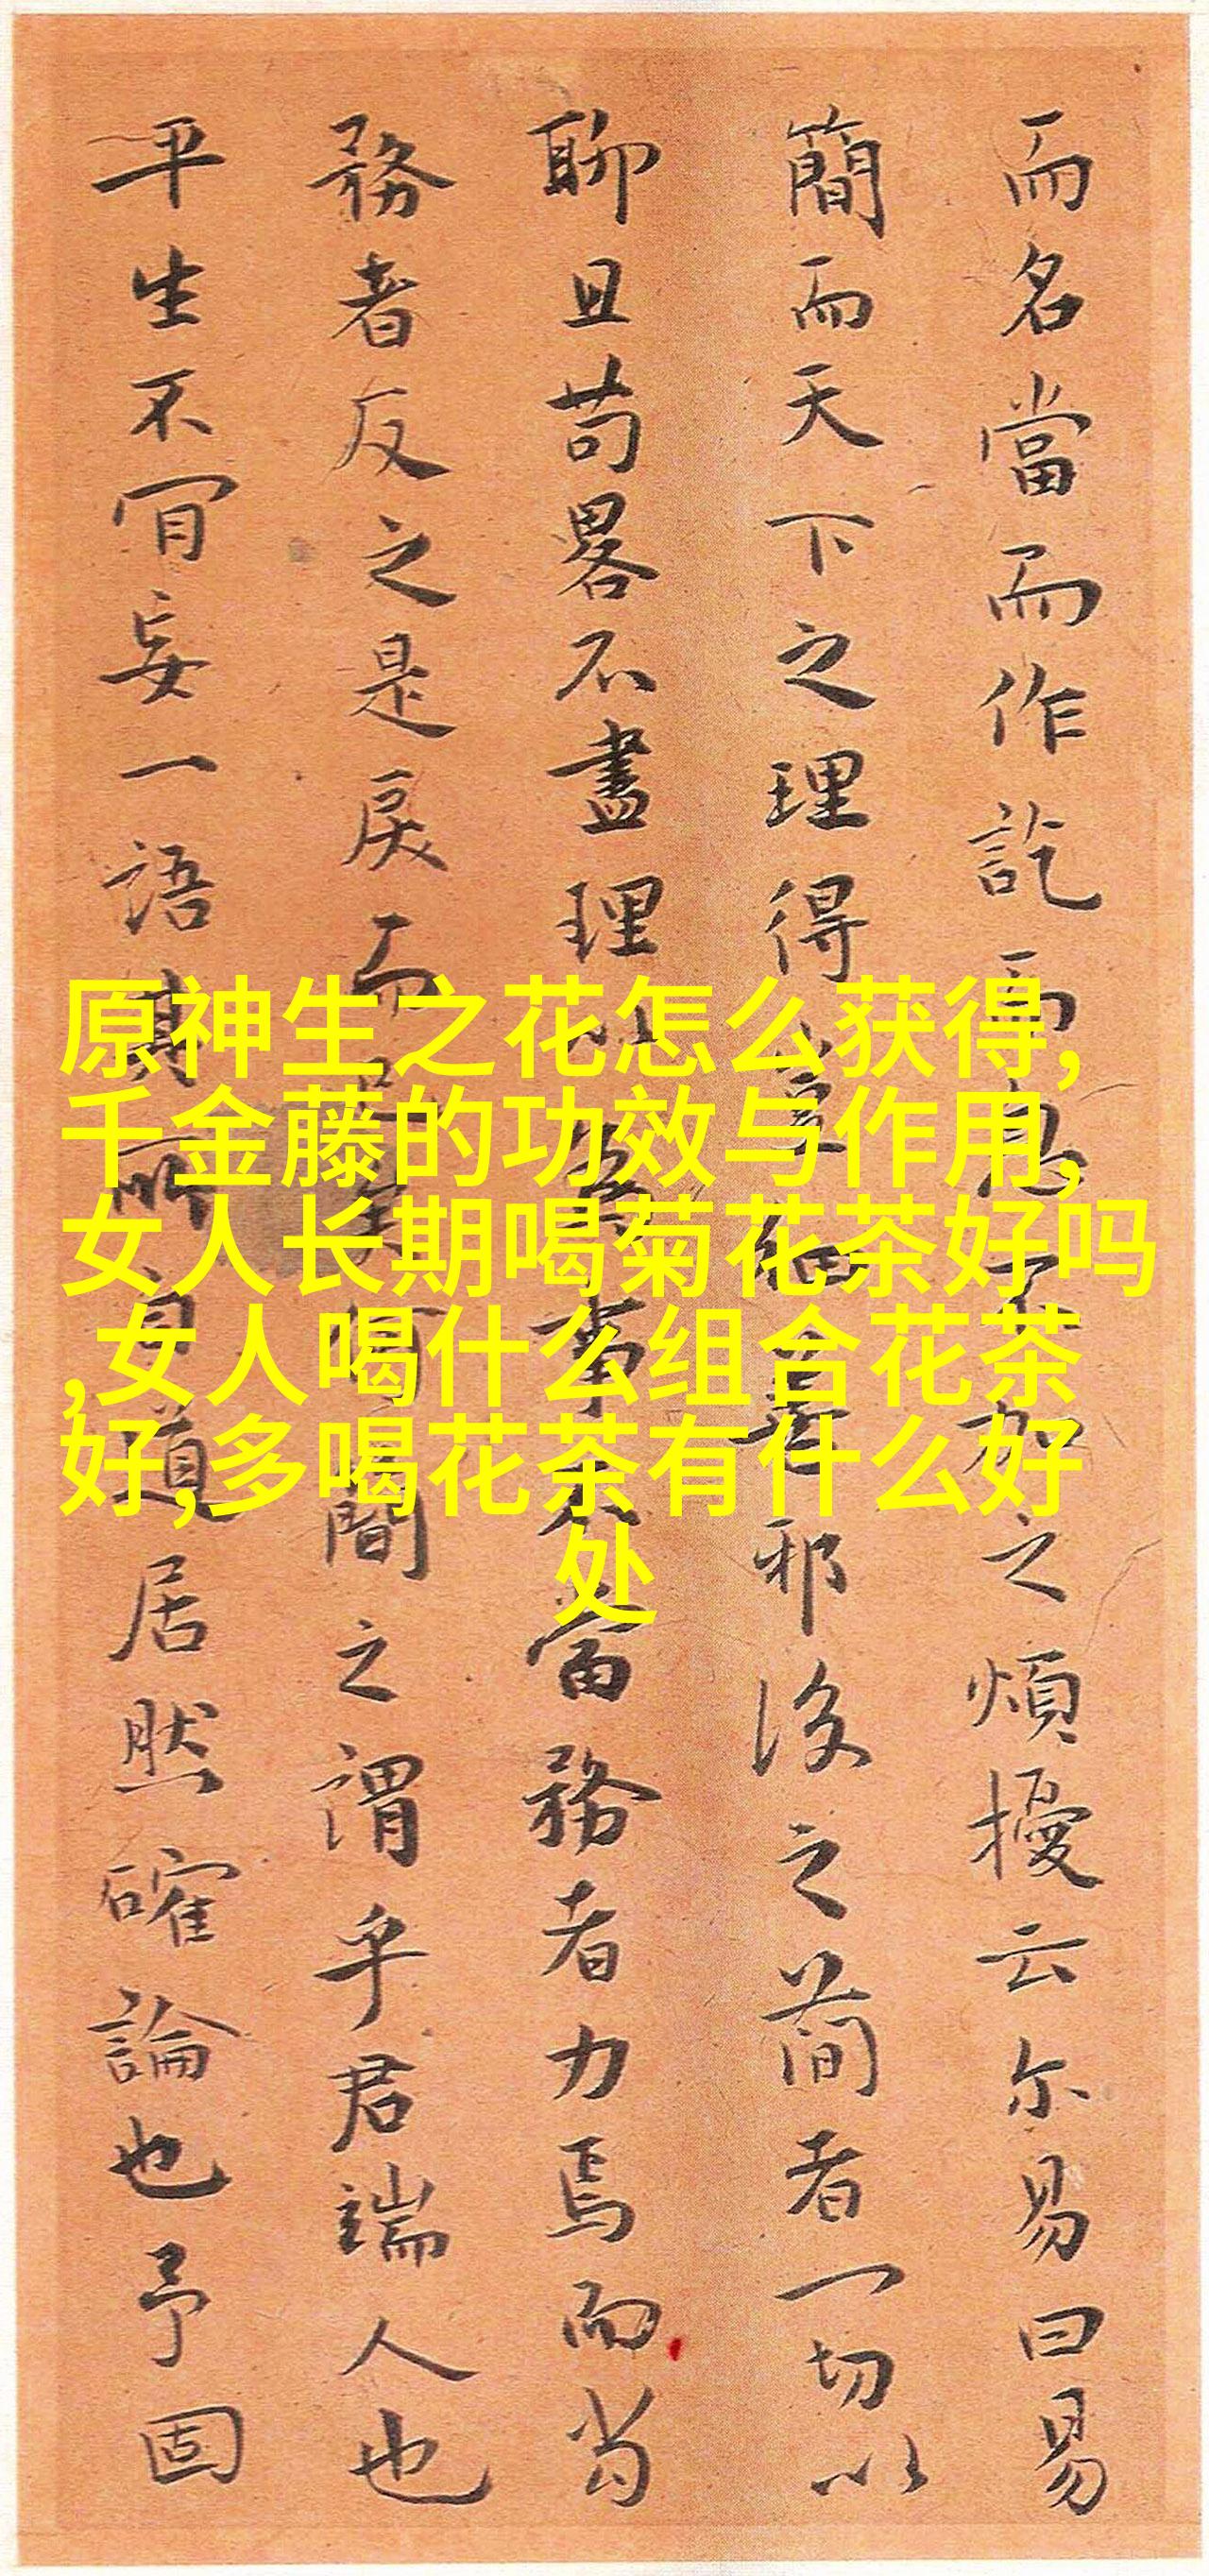 而名當而作訖而息不加之煩擾云尔易曰易
簡而天下之理得細邪後之简者一切以
聊且苟畧不盡理事不當務者力焉而當
務者反之是戾而簡之謂乎君端人也
平生不肎妄一語其所自道居然確論也予固
原神生之花怎么获得,
千金藤的功效与作用,
女人长期喝菊花茶好吗
,女人喝什么组合花茶
好,多喝花茶有什么好
处